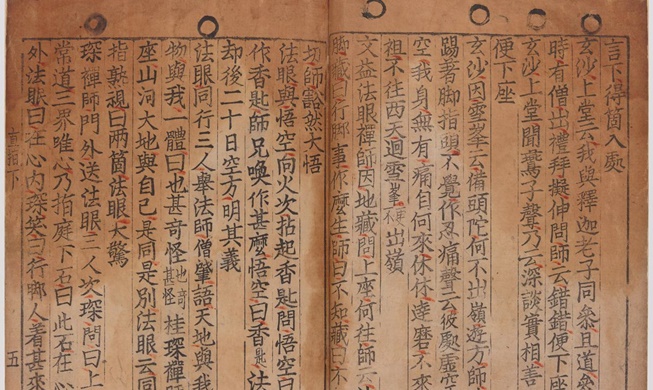 言下得箇入處
玄沙上堂云我與釋迦老子同叅且道叅
時有僧出禮拜擬伸問師云錯錯便下座
玄沙上堂聞鷰子聲乃云深談實相善
便下座
玄沙因雪峯云備頭陀何不出嶺遊方師
踢著脚指頭不覺作忍痛聲云彼歐虛空
空我身無有痛自何來休休達磨不來
祖不往西天迴雪峯 出嶺
文益法眼禪師因地藏問上座何往師云
脚藏曰行脚事作麽生師曰不知藏曰不
切師豁然大悟
法眼與悟空向火次拈起香匙問悟空曰
作香匙師兄喚作甚麽悟空曰香匙法
却後二十日空方明其義
法眼同行三人舉法師僧肇語天地與我
物與我一體曰也甚竒怪 桂琛禪
座山河大地與自己是同是別法眼云同
指熟視曰兩箇法眼大驚
琛禪師門外送法眼三人次琛問曰上
常道三界唯心乃指庭下石曰此石在心
外法眼曰在心內琛笑曰行脚人著甚來
直指下 五